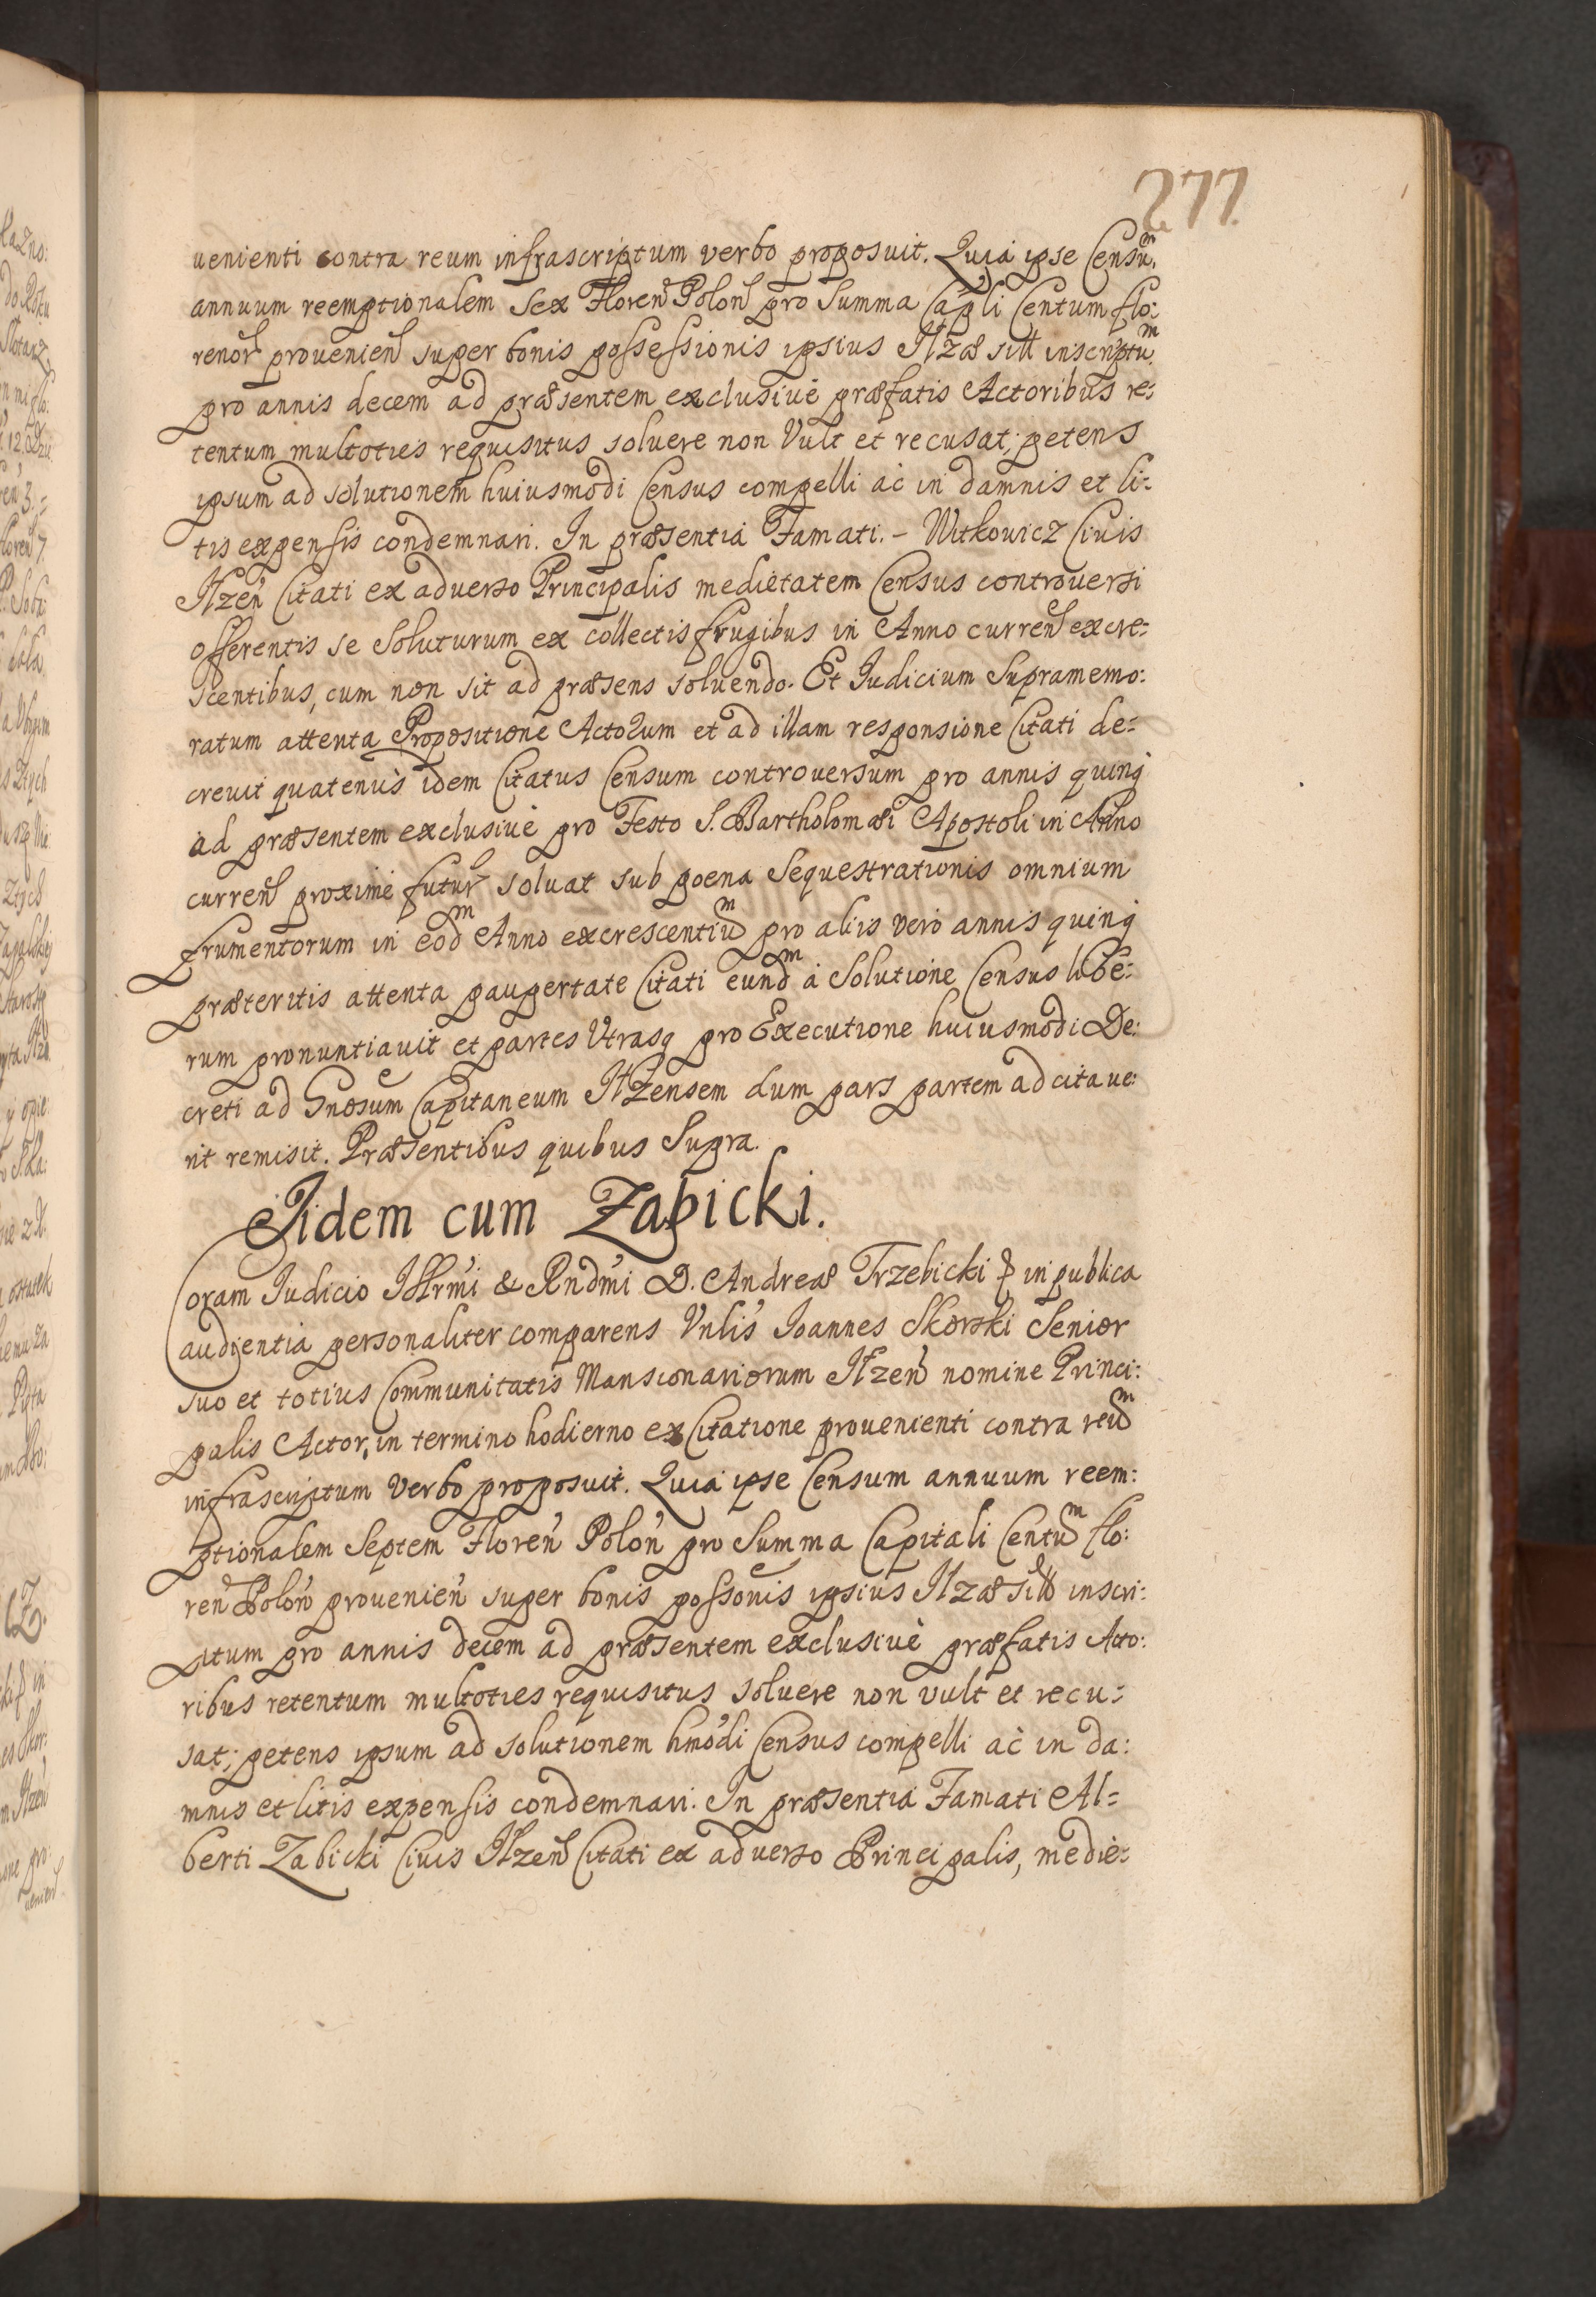 277
uenienti contra reum infrascriptum verbo proposuit. Quia ipse Censũ
annuum reemptionalem Sex Floreñ Poloñ pro Summa Capli Centum flo:
renor̃ prouenieñ super bonis possessionis ipsius Ilzæ sitt inscriptũ
pro annis decem ad præsentem exclusiuè præfatis Actoribus re:
tentum multoties requisitus soluere non Vult et recusat; petens
ipsum ad solutionem huiusmodi Census compelli ac in damnis et li:
tis expensis condemnari. In præsentia Famati. – Witkowicz Ciuis
Ilzeń Citati ex aduerso Principalis medietatem Census controuersi
offerentis se Soluturum ex collectis frugibus in Anno curreñ excre:
scentibus, cum non sit ad præsens soluendo. Et Iudicium Supramemo:
ratum attenta Propositione Actorum et ad illam responsione Citati de:
creuit quatenus idem Citatus Censum controuersum pro annis quinq
ad præsentem exclusiuè pro Festo S. Bartholomæi Apostoli in Anno
curreñ proximè futur̃ soluat sub poena Sequestrationis omnium
frumentorum in eod^m Anno excrescentiũ pro aliis verò annis quinq
præteritis attenta paupertate Citati eund^m à Solutione Census libe:
rum pronuntiauit et partes Vtrasq pro Executione huiusmodi De:
creti ad Gnosum Capitaneum Ilzensem dum pars partem adcitaue:
rit remisit. Præsentibus quibus Supra.
Iidem cum Zabicki.
Coram Iudicio Illrmi & Rndmi D. Andreæ Trzebicki in publica
audientia personaliter comparens Vnlis Ioannes Skorski Senior
suo et totius Communitatis Mansionariorum Ilzeń nomine Princi:
palis Actor, in termino hodierno ex Citatione prouenienti contra reũ
infrascriptum Verbo proposuit. Quia ipse Censum annuum reem:
ptionalem Septem Floreń Poloń pro Summa Capitali Centũ flo:
reñ Poloń prouenień super bonis possonis ipsius Ilzæ sitt inscri:
ptum pro annis decem ad præsentem exclusiuè præfatis Acto:
ribus retentum multoties requisitus soluere non vult et recu:
sat; petens ipsum ad solutionem hmodi Census compelli ac in da:
mnis et litis expensis condemnari. In præsentia Famati Al:
berti Zabicki Ciuis Ilzeñ Citati ex aduerso Principalis, medie: